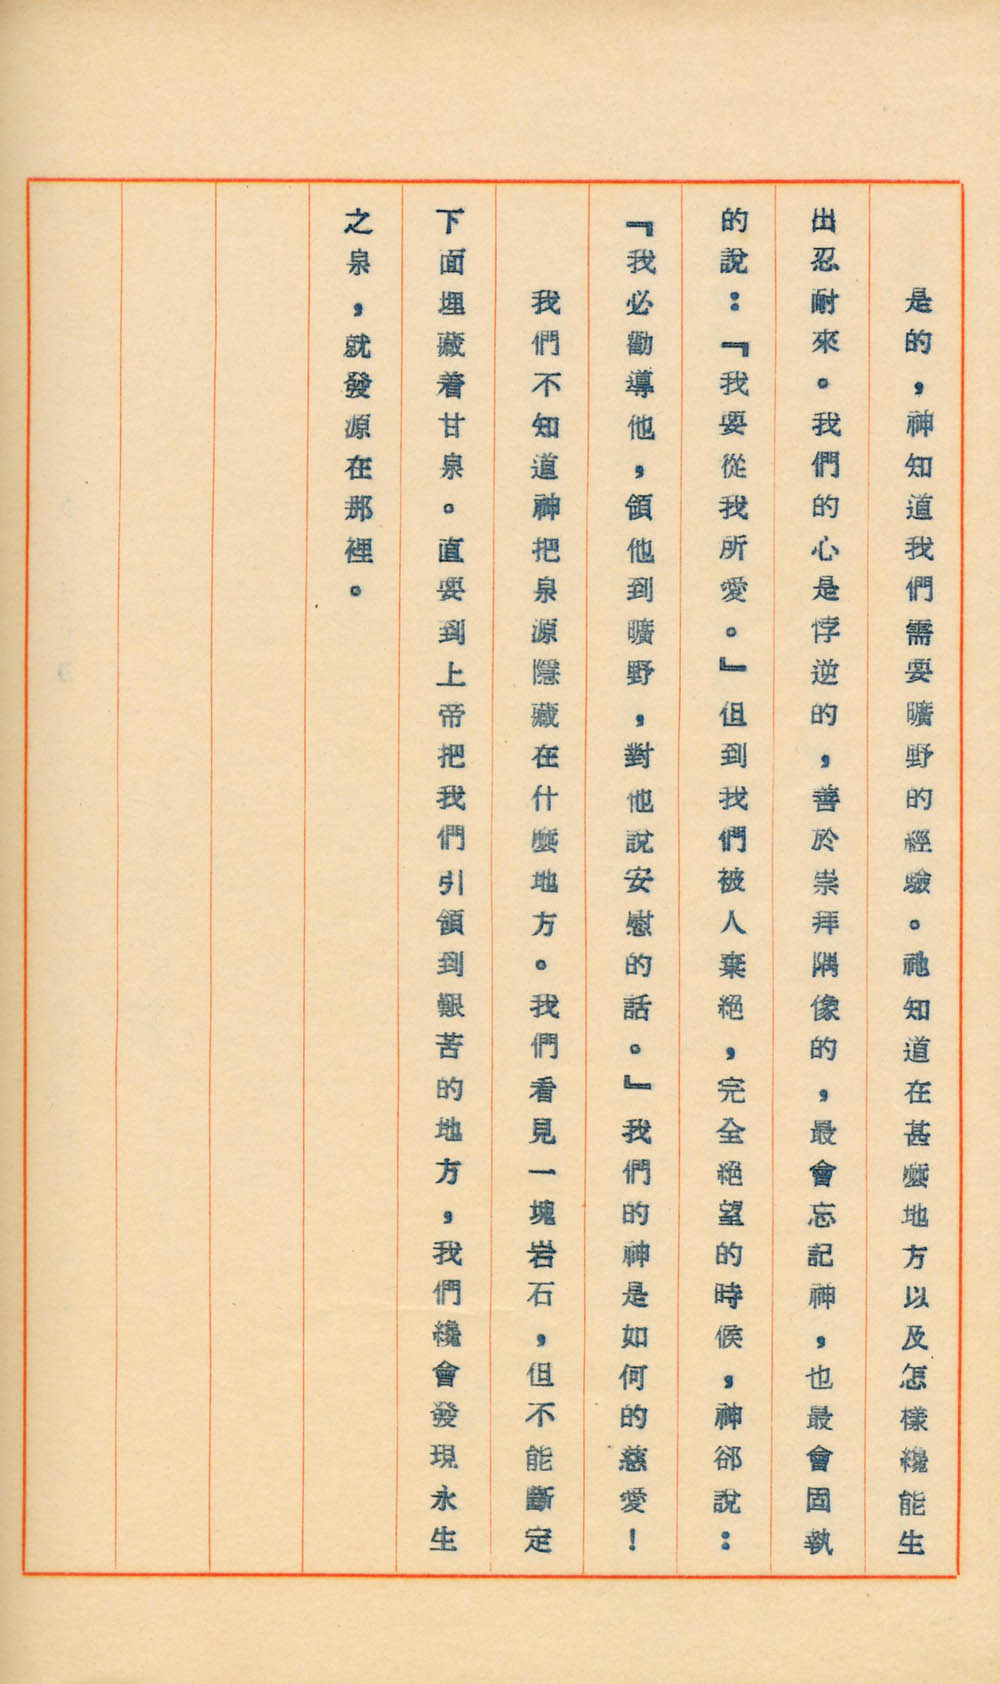 是的，神知道我們需要曠野的經驗。祂知道在甚麼地方以及怎樣纔能生
出忍耐來。我們的心是悖逆的，善於崇拜隅像的，最會忘記神，也最會固執
的說：『我要從我所愛。』但到我們被人棄絕，完全絕望的時候，神郤說：
『我必勸導他，領他到曠野，對他說安慰的話。』我們的神是如何的慈愛！
我們不知道神把泉源隱藏在什麼地方。我們看見一塊岩石，但不能斷定
下面埋藏着甘泉。直要到上帝把我們引領到艱苦的地方，我們纔會發現永生
之泉，就發源在那裡。